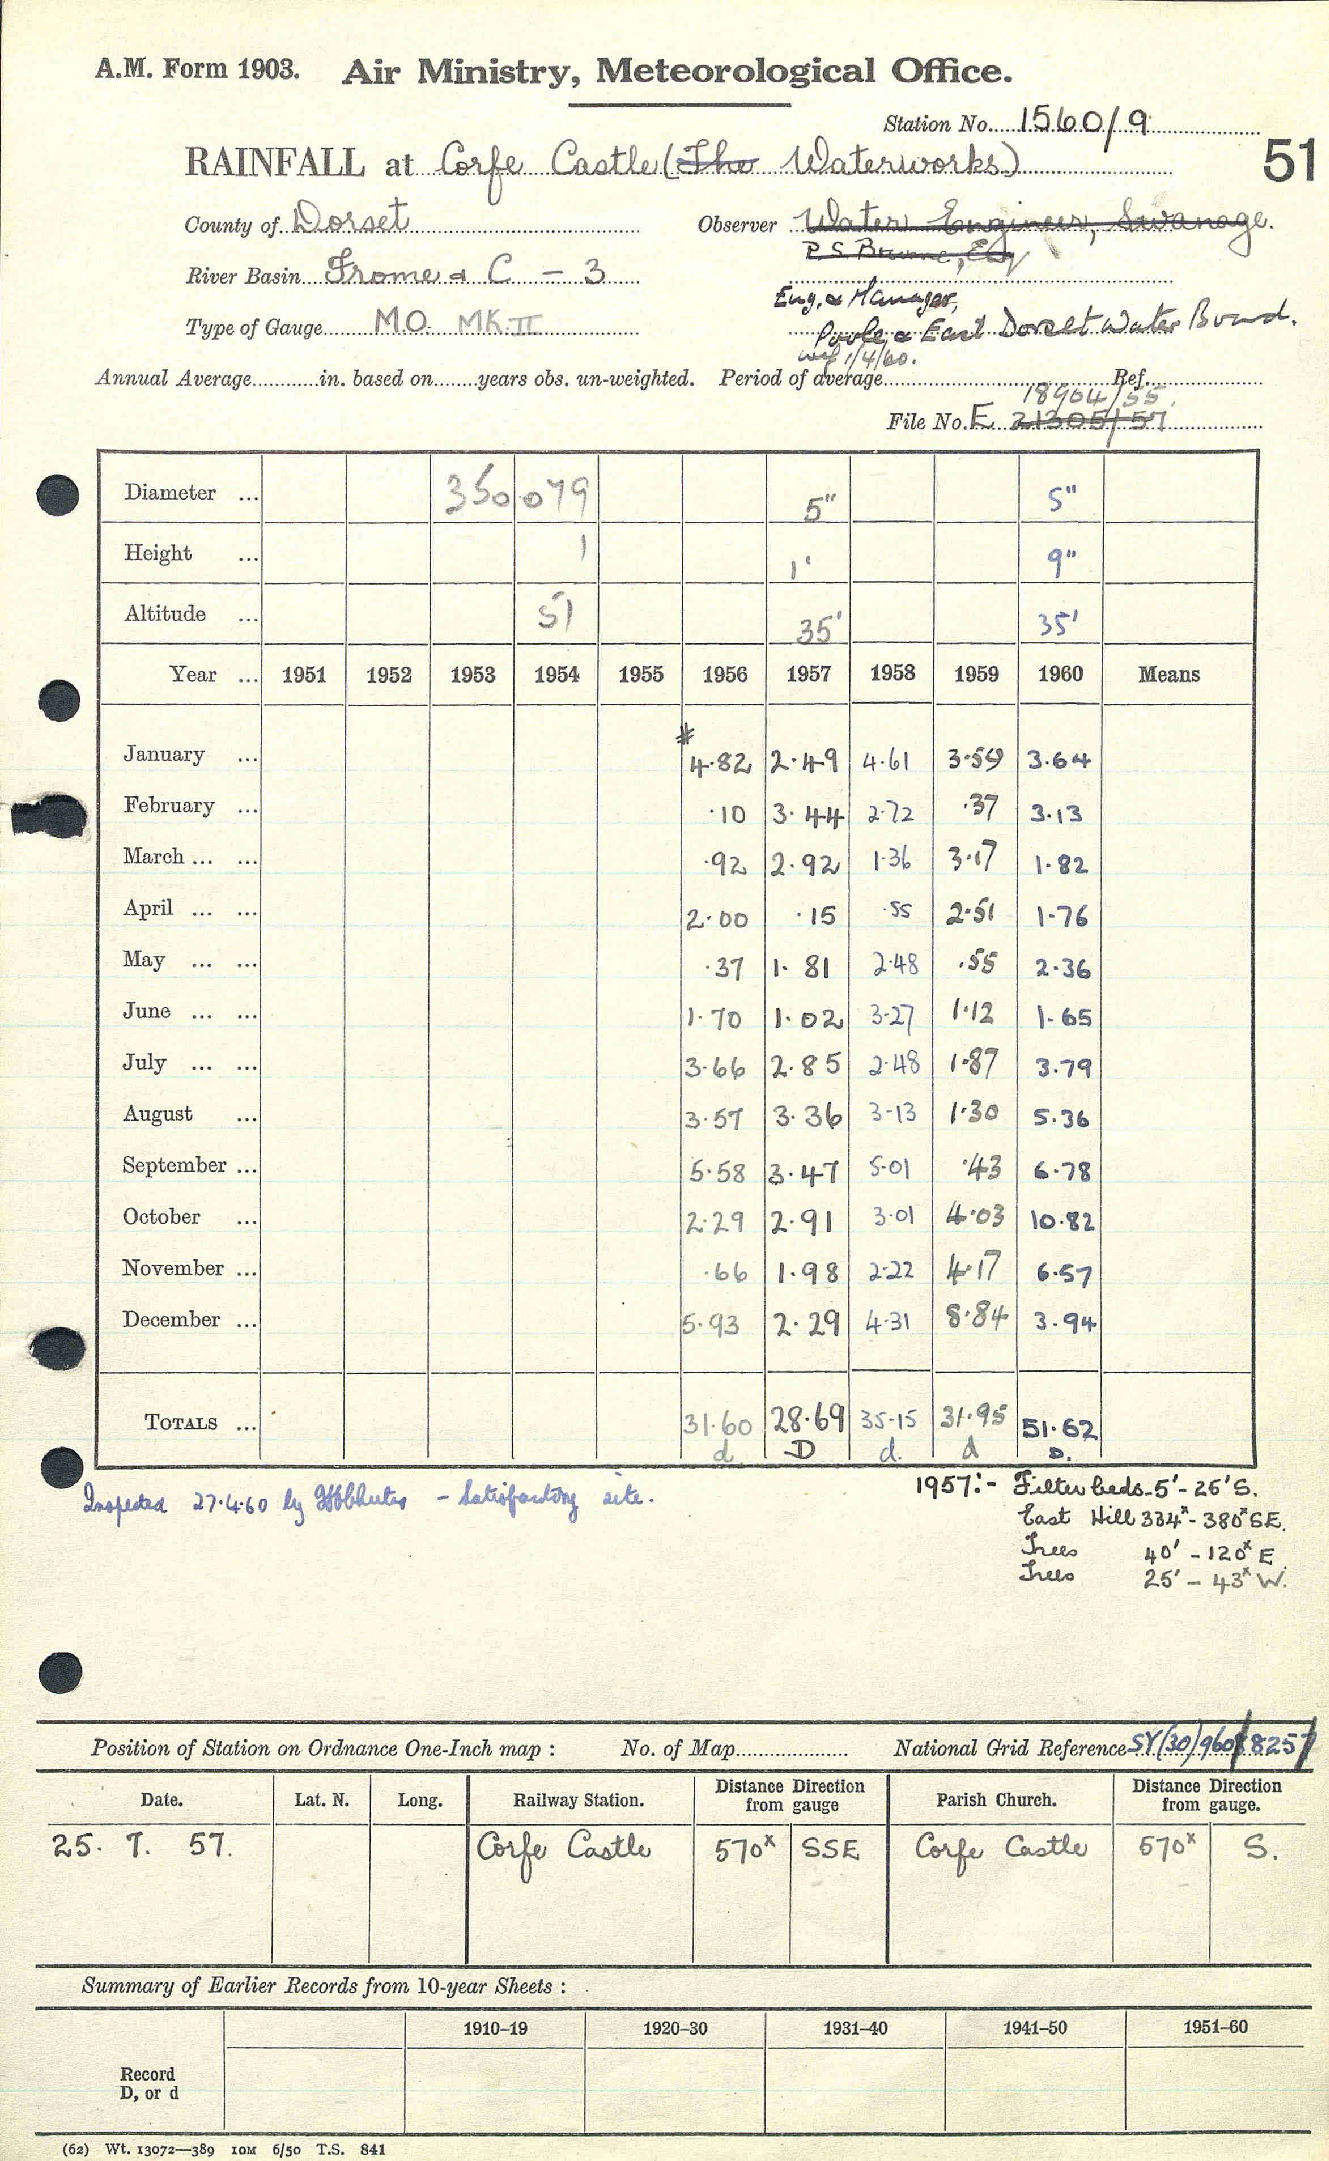 A.M. Form 1903. Air Ministry, Meteorological Office.
Station No. 1560/9
RAINFALL at Corfe Castle (The Waterworks)
51
County of Dorset Observer Water Engineer, Swanage.
P.S. Esq
River Basin Frome & C - 3
Eng. & Manager,
Type of Gauge M.O. MK.II Poole & East Dorset Water Board.
wef 1/4/60.
Annual Average............in. based on........years obs. un-weighted. Period of average............ Ref.............
18904/55.
File No. E 21305/57
Diameter ... 350 079 5" 5"
Height ... 1 1' 9"
Altitude ... 51 35' 35'
Year ... 1951 1952 1953 1954 1955 1956 1957 1958 1959 1960 Means
January ... * 4.82 2.49 4.61 3.59 3.64
February ... .10 3.44 2.72 .37 3.13
March ... ... .92 2.92 1.36 3.17 1.82
April ... ... 2.00 .15 .55 2.51 1.76
May ... ... .37 1.81 2.48 .55 2.36
June ... ... 1.70 1.02 3.27 1.12 1.65
July ... ... 3.66 2.85 2.48 1.87 3.79
August ... 3.57 3.36 3.13 1.30 5.36
September ... 5.58 3.47 5.01 .43 6.78
October ... 2.29 2.91 3.01 4.03 10.82
November ... .66 1.98 2.22 4.17 6.57
December ... 5.93 2.29 4.31 8.84 3.94
TOTALS ... 31.60 28.69 35.15 31.95 51.62
d D d. d D.
Inspected 27.4.60 by - Satisfactory site.
1957:- Filter beds - 5' - 26'S.
East Hill 334ˣ - 380ˣ SE.
Trees 40' - 120ˣ E
Trees 25' - 43ˣ W.
Position of Station on Ordnance One-Inch map : No. of Map.................... National Grid Reference SY(30)960/825/
Date. Lat. N. Long. Railway Station. Distance Direction from gauge Parish Church. Distance Direction from gauge.
25. 7. 57. Corfe Castle 570ˣ SSE Corfe Castle 570ˣ S.
Summary of Earlier Records from 10-year Sheets :
1910–19 1920–30 1931–40 1941–50 1951–60
Record
D, or d
(62) Wt. 13072—389 10M 6/50 T.S. 841